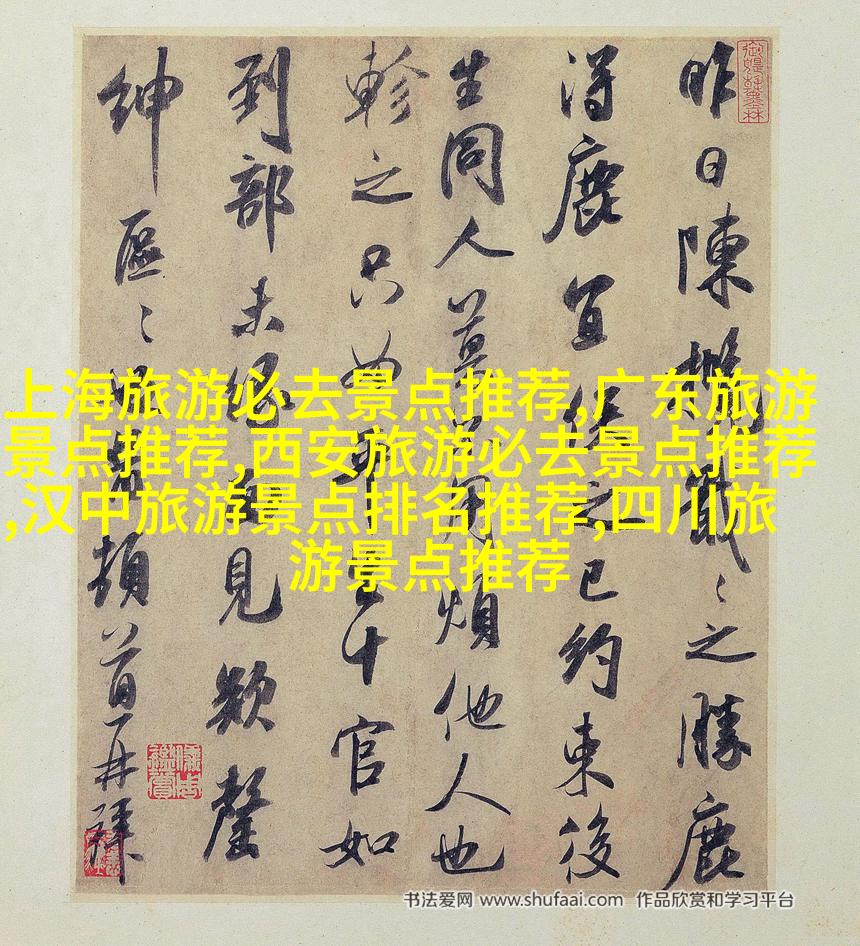 昨日陳戢〻之勝鹿
得鹿宜之已約束後
生同人用煩他人也
軫之只十官如
到部未緣見欲罄
紳區〻頓首再拜
上海旅游必去景点推荐,广东旅游
景点推荐,西安旅游必去景点推荐
,汉中旅游景点排名推荐,四川旅
游景点推荐
书法爱网 www.shufaai.com 作品欣赏和学习平台